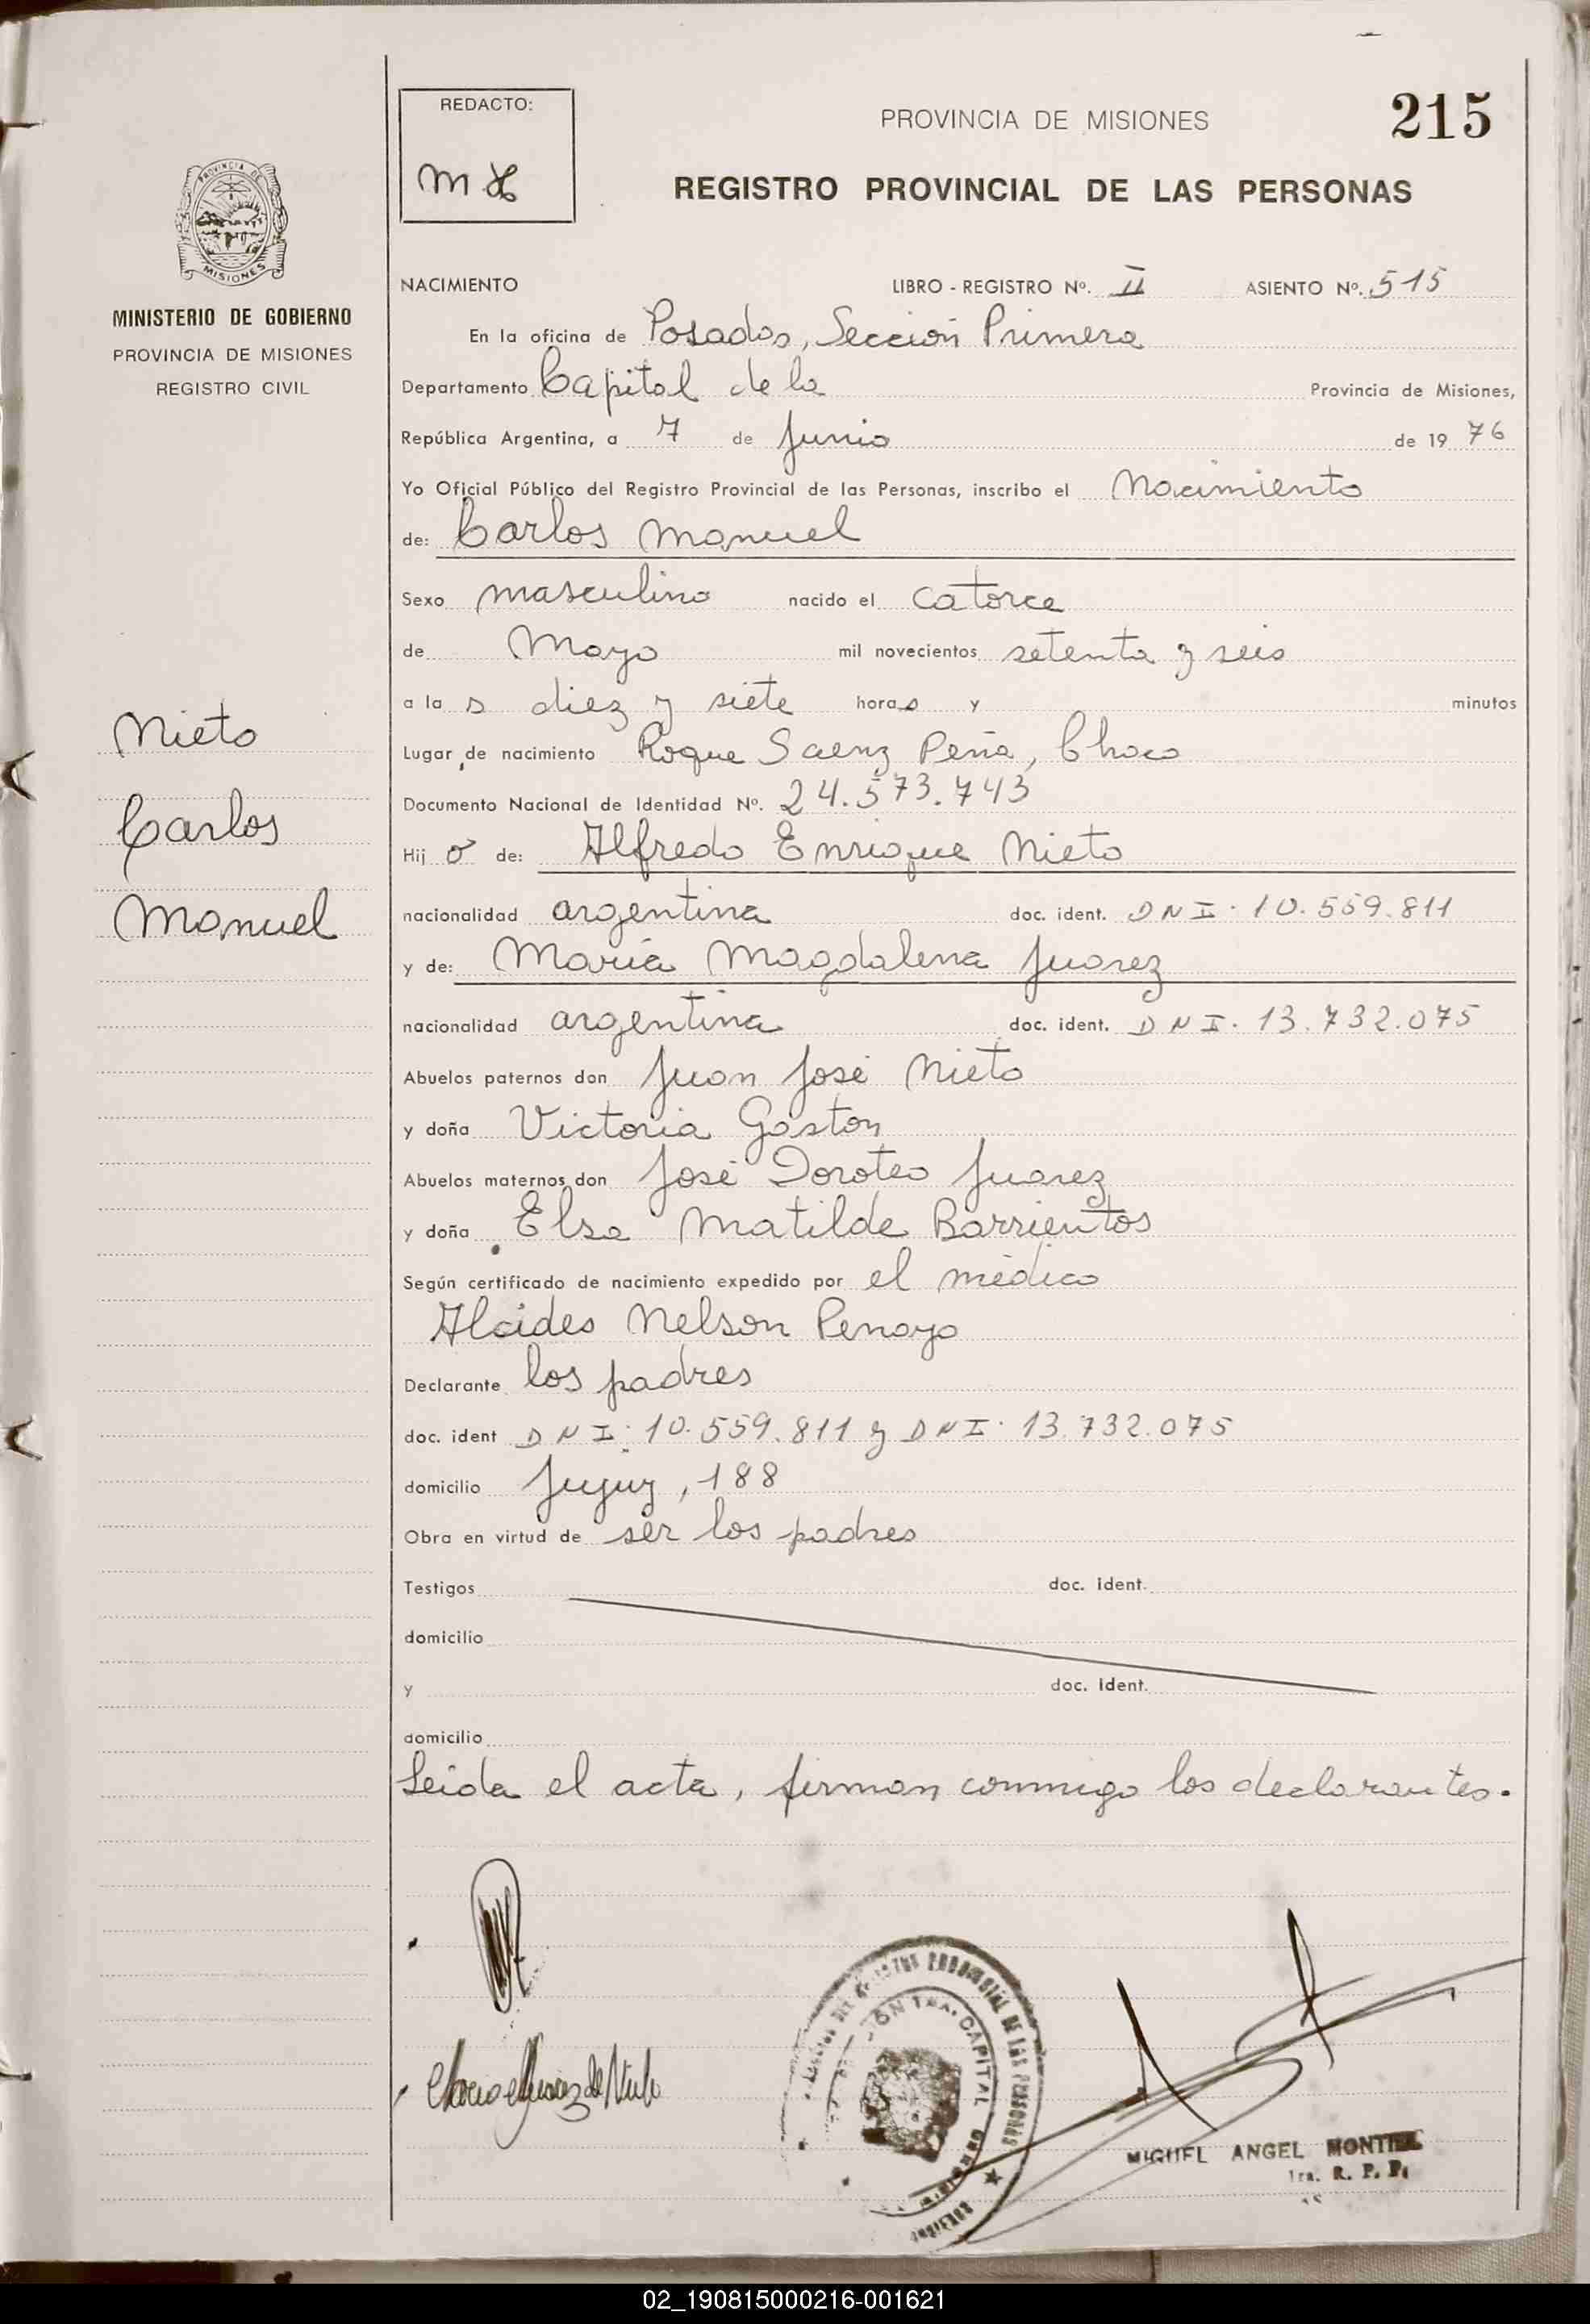 REDACTO:
PROVINCIA DE MISIONES
215
REGISTRO PROVINCIAL DE LAS PERSONAS
PROVINCIA DE
MISIONES
MINISTERIO DE GOBIERNO
PROVINCIA DE MISIONES
REGISTRO CIVIL
NACIMIENTO LIBRO - REGISTRO Nº. II ASIENTO Nº. 515
En la oficina de Posadas, Sección Primera
Departamento Capital de la Provincia de Misiones,
República Argentina, a 7 de Junio de 19 76
Yo Oficial Público del Registro Provincial de las Personas, inscribo el Nacimiento
de: Carlos Manuel
Sexo masculino nacido el catorce
de Mayo mil novecientos setenta y seis
a la s diez y siete horas y minutos
Lugar de nacimiento Roque Saenz Peña, Chaco
Documento Nacional de Identidad Nº. 24.573.743
Hij o de: Alfredo Enrique Nieto
nacionalidad argentina doc. ident. DNI. 10.559.811
y de: María Magdalena Juarez
nacionalidad argentina doc. ident. DNI. 13.732.075
Abuelos paternos don Juan José Nieto
y doña Victoria Gaston
Abuelos maternos don José Doroteo Juarez
y doña Elsa Matilde Barrientos
Según certificado de nacimiento expedido por el médico
Alcides Nelson Penayo
Declarante los padres
doc. ident DNI. 10.559.811 y DNI. 13.732.075
domicilio Jujuy, 188
Obra en virtud de ser los padres
Testigos doc. ident.
domicilio
y doc. ident.
domicilio
Leída el acta, firman conmigo los declarantes.
Nieto
Carlos
Manuel
PROVINCIAL DE LAS PERSONAS
CAPITAL
MIGUEL ANGEL MONTIEL
1ra. R. P. P.
02_190815000216-001621